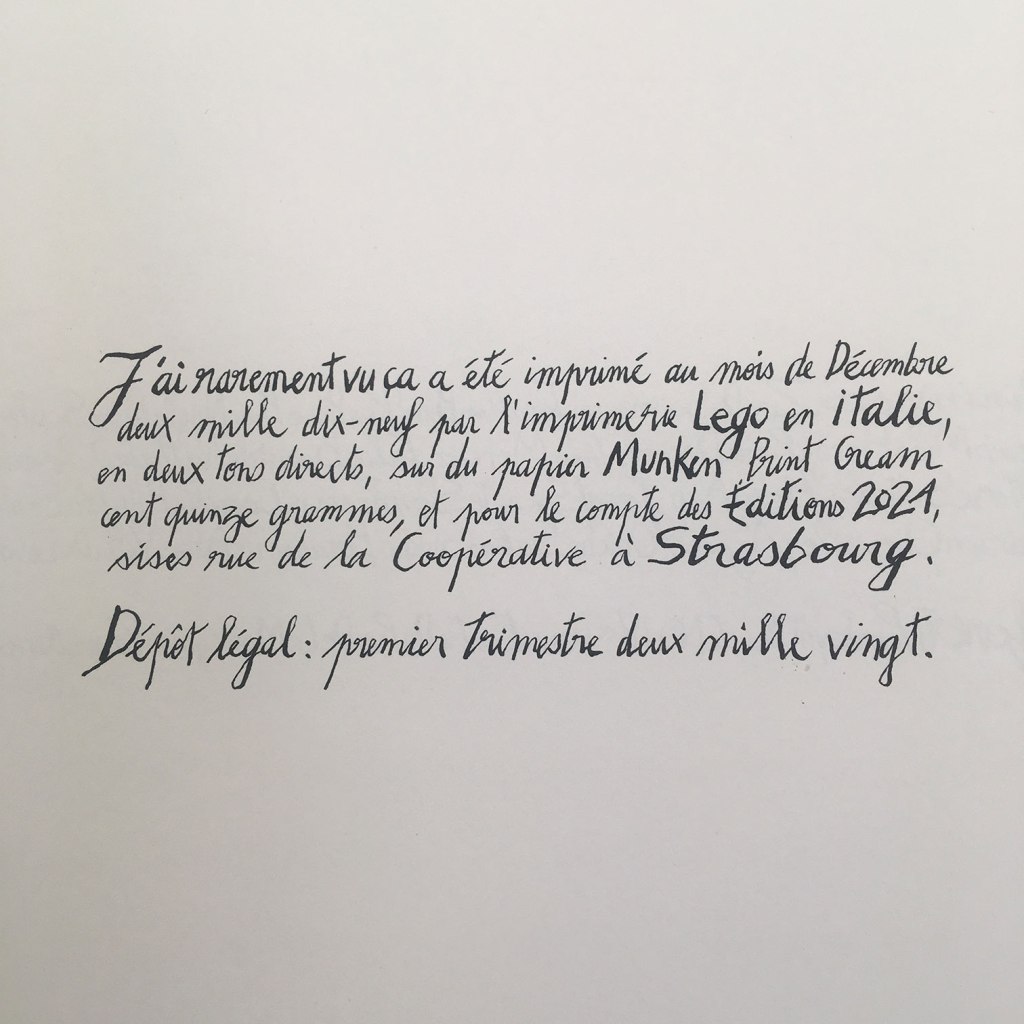 J'ai rarement vu ça a été imprimé au mois de Décembre
deux mille dix-neuf par l'imprimerie Lego en italie,
en deux tons directs, sur du papier Munken Print Cream
cent quinze grammes, et pour le compte des Éditions 2024,
sises rue de la Coopérative à Strasbourg.
Dépôt légal : premier trimestre deux mille vingt.